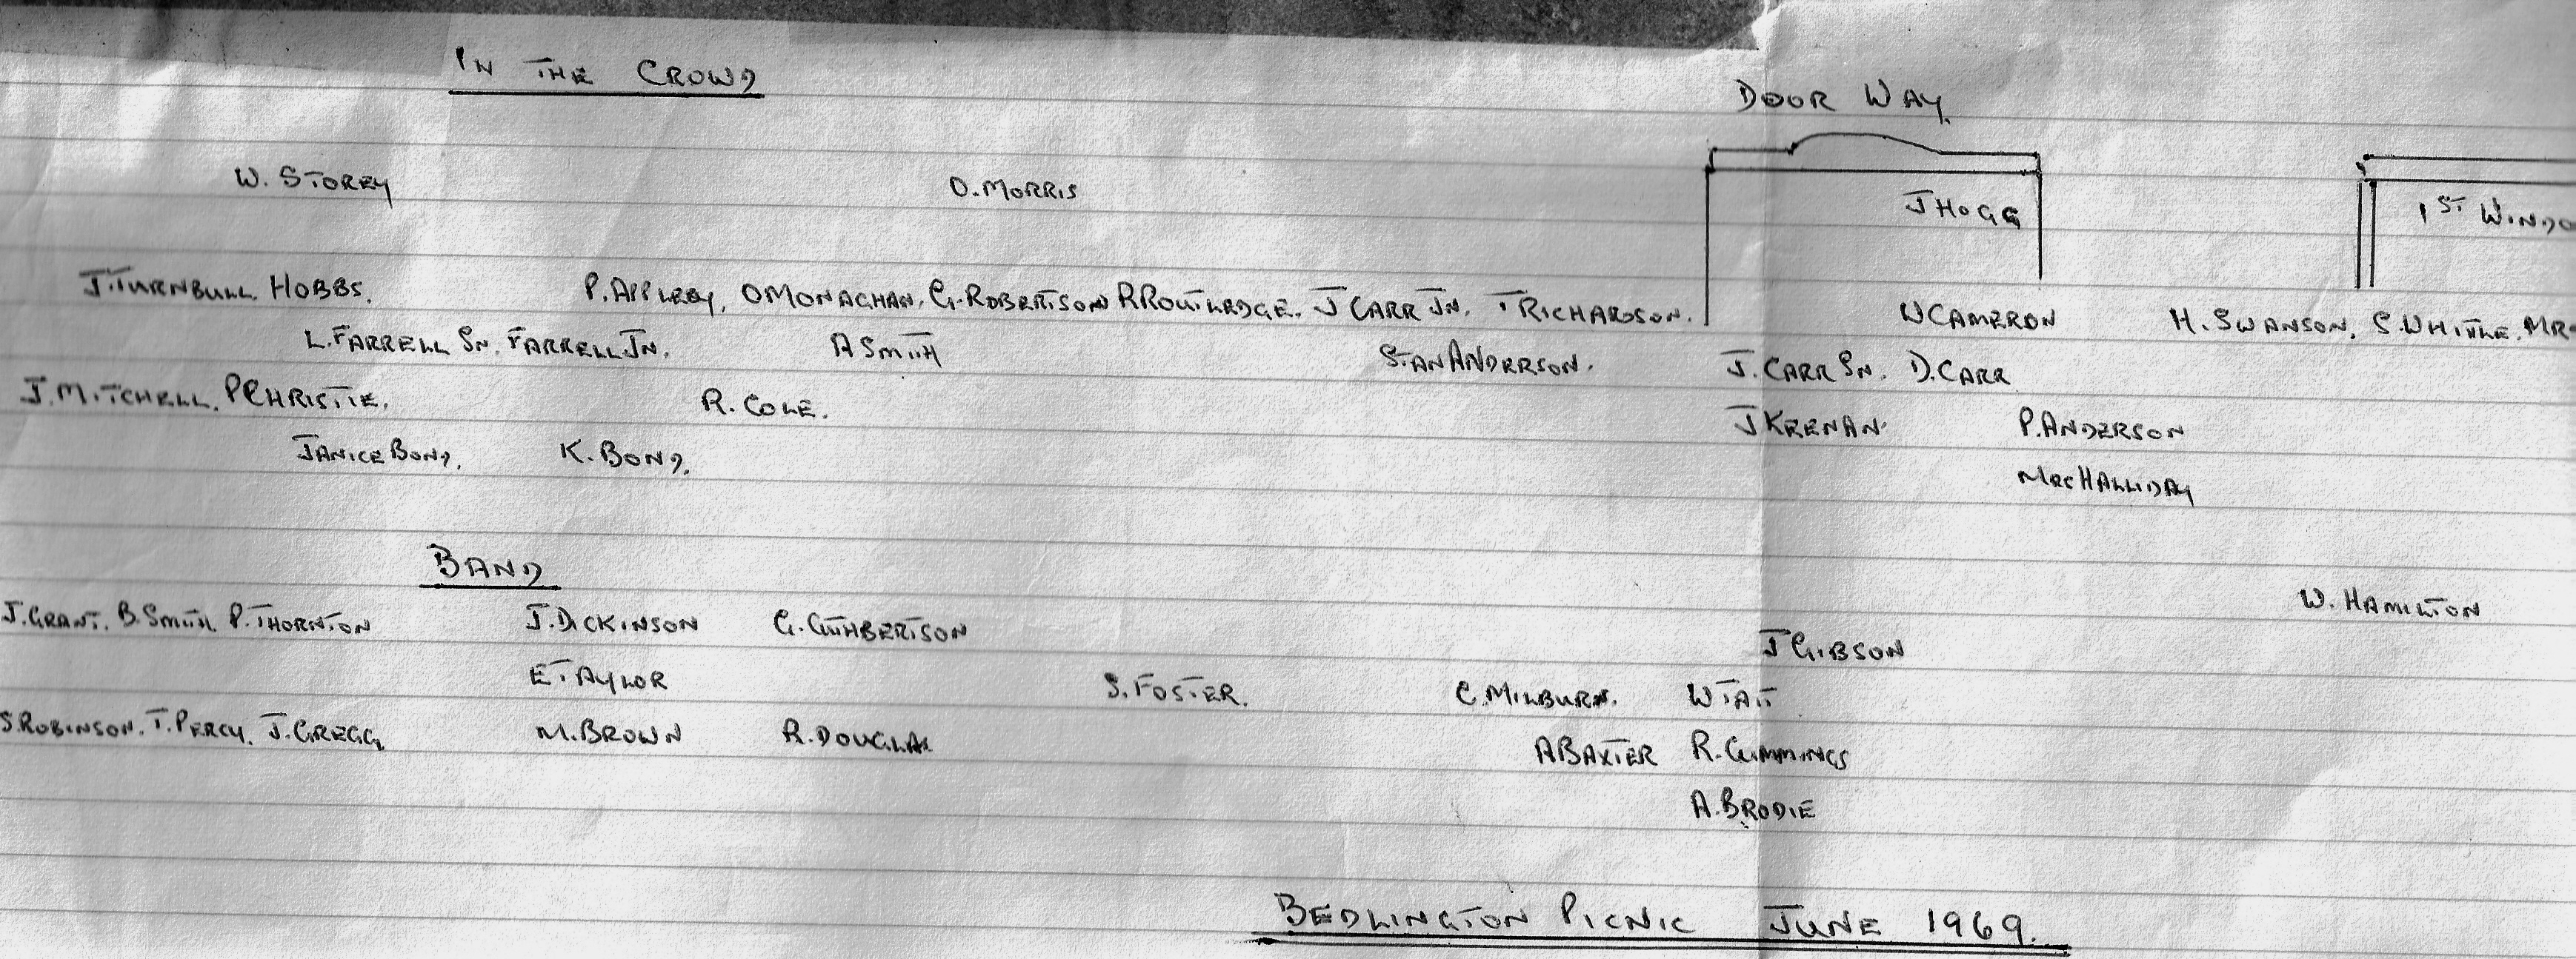 IN THE CROWD
DOOR WAY.
W. STOREY O. MORRIS J HOGG 1ST WINDO
J. TURNBULL HOBBS. P. APPLEBY, O MONAGHAN, G. ROBERTSON R ROUTLEDGE. J CARR JN. T RICHARDSON. W CAMERON H. SWANSON. S. WHITTLE. MRS
L. FARRELL SN. FARRELL JN. A SMITH STAN ANDERSON. J. CARR SN. D. CARR
J. MITCHELL. P CHRISTIE. R. COLE. J KEENAN P. ANDERSON
JANICE BOND. K. BOND. MRS HALLIDAY
BAND
J. GRANT. B. SMITH. P. THORNTON J. DICKINSON G. CUTHBERTSON W. HAMILTON
J GIBSON
E TAYLOR S. FOSTER. C. MILBURN. W TAIT
S. ROBINSON. T. PERCY. J. GREGG M. BROWN R. DOUGLAS A BAXTER R. CUMMINGS
A. BRODIE
BEDLINGTON PICNIC JUNE 1969.